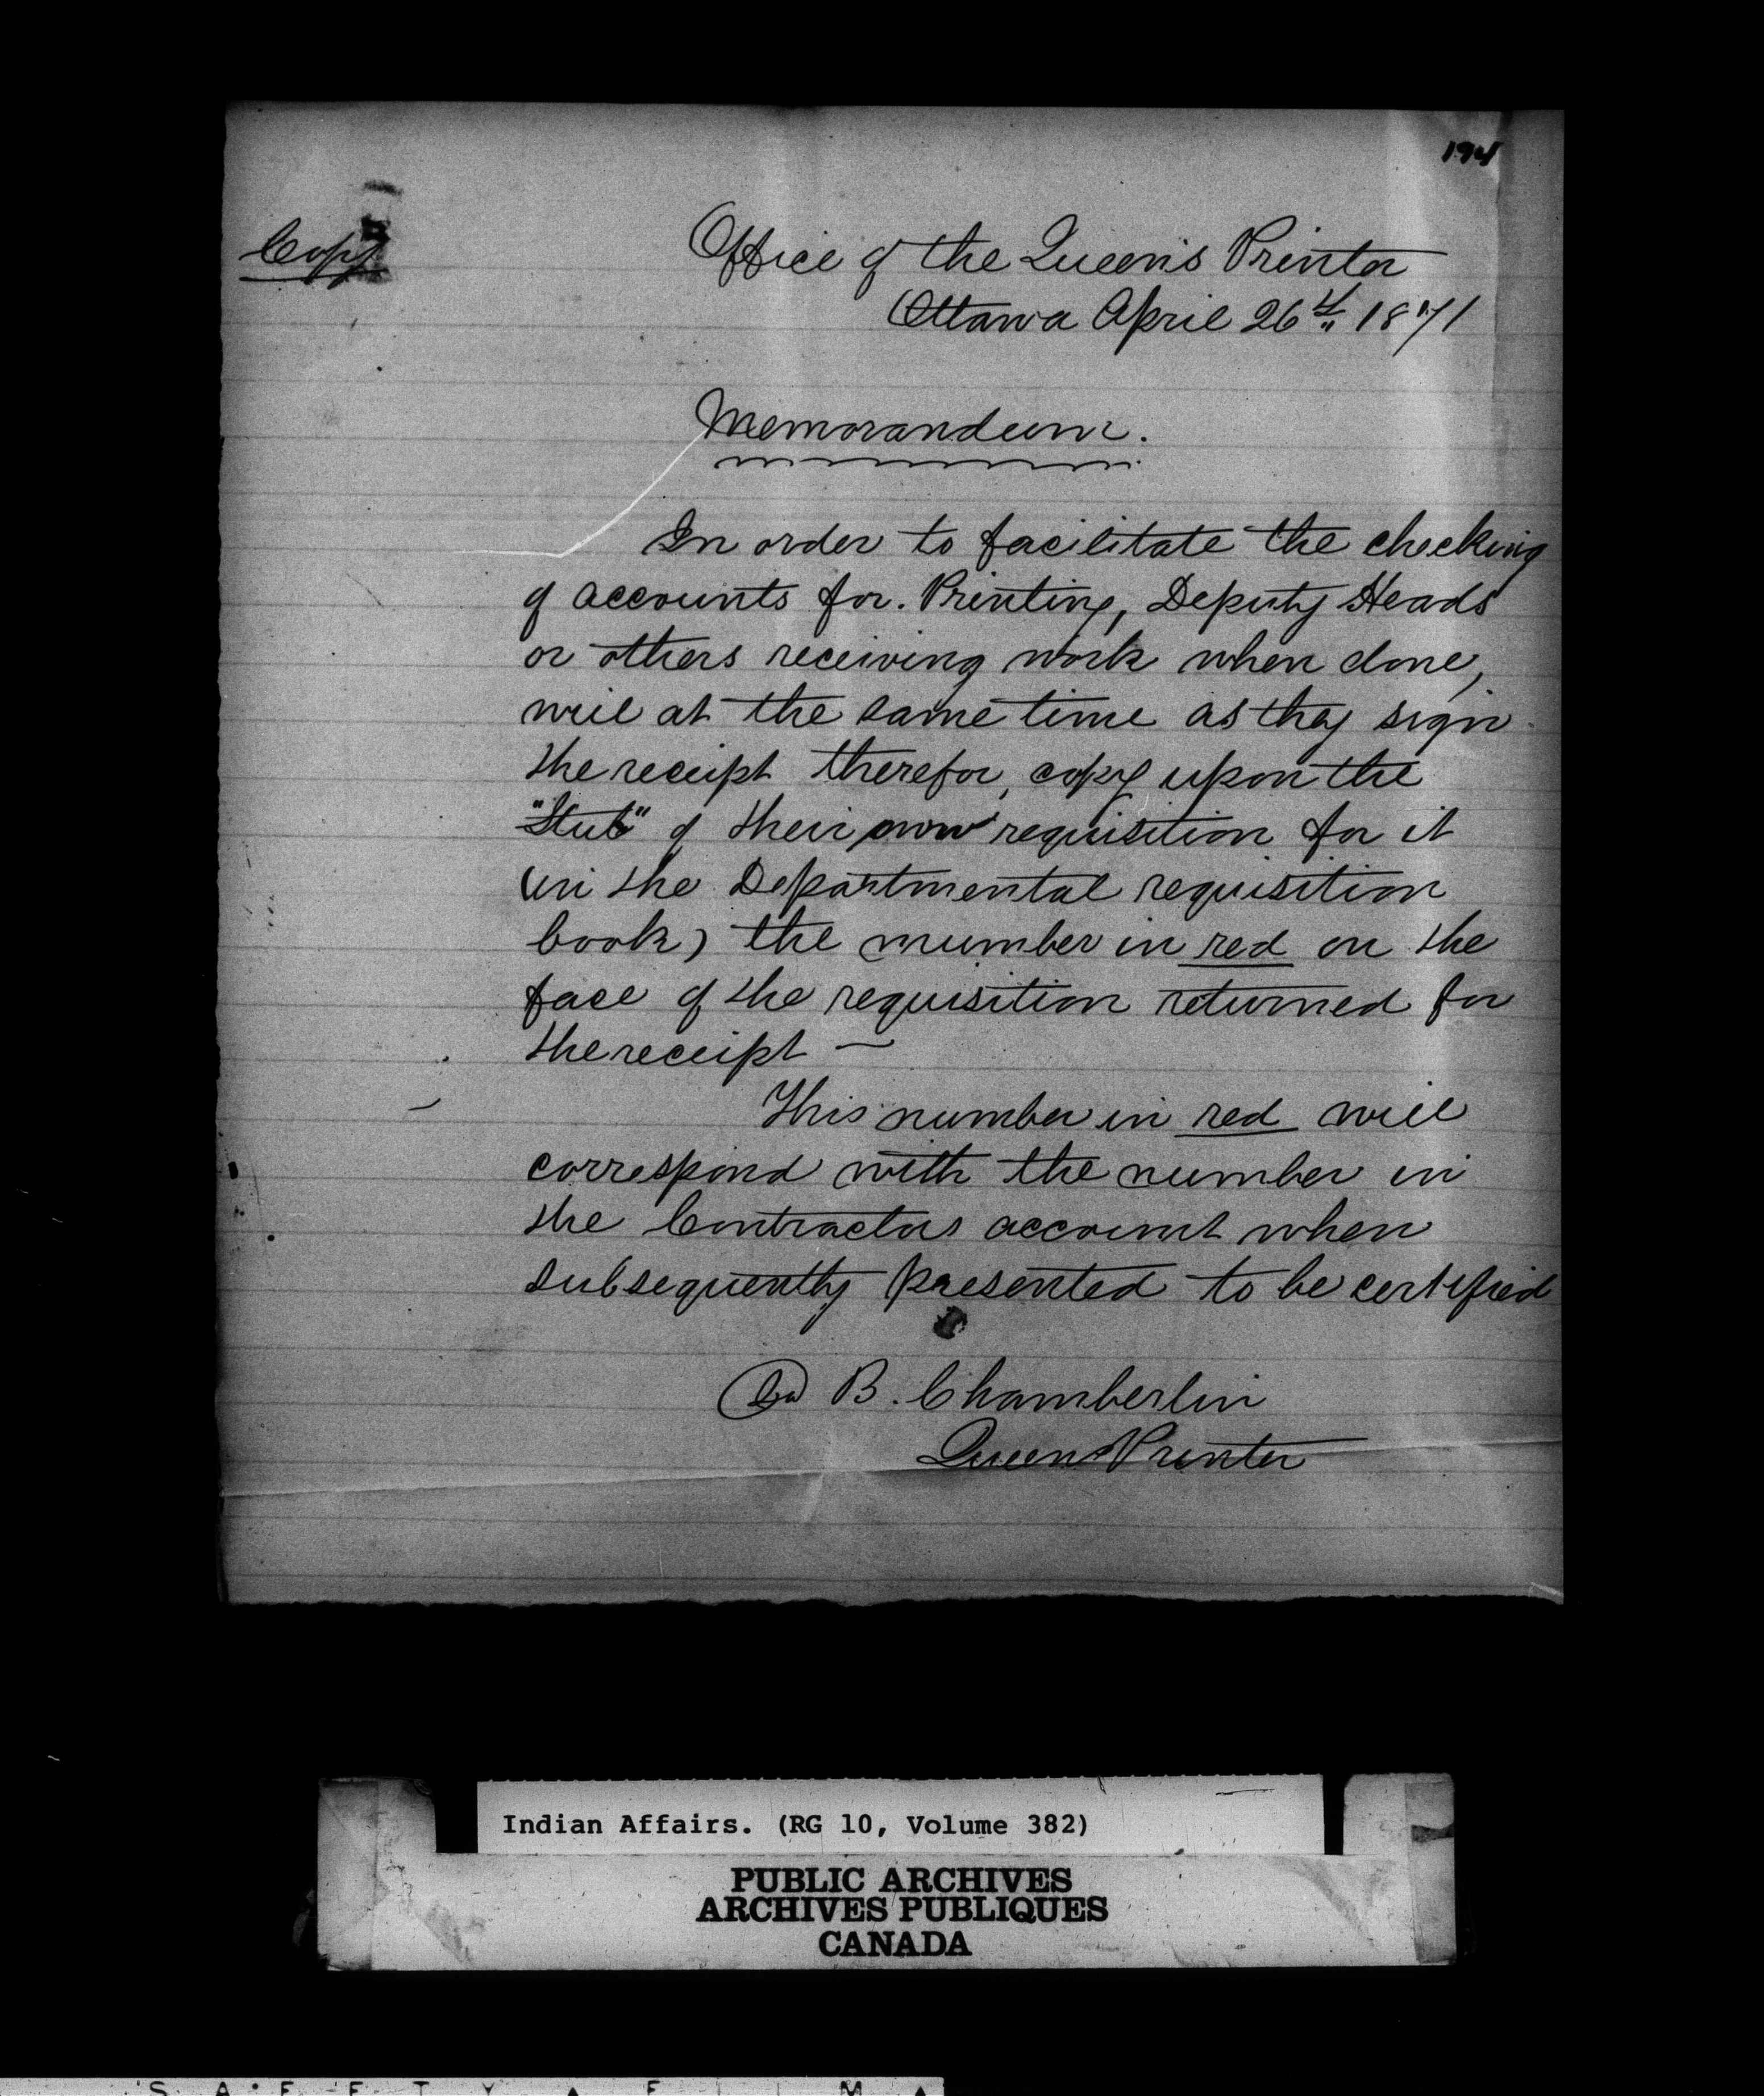 194
Copy
Office of the Queen's Printer
Ottawa April 26th 1871
Memorandum.
In order to facilitate the checking
of accounts for. Printing, Deputy Heads
or others receiving work when done,
will at the same time as they sign
the receipt therefor, copy upon the
"Stub" of their own requisition for it
(in the Departmental requisition
book) the number in red on the
face of the requisition returned for
the receipt —
This number in red will
correspond with the number in
the Contractors account when
subsequently presented to be certified
B. Chamberlin
Queens Printer
Indian Affairs. (RG 10, Volume 382)
PUBLIC ARCHIVES
ARCHIVES PUBLIQUES
CANADA
SAFETY FILM